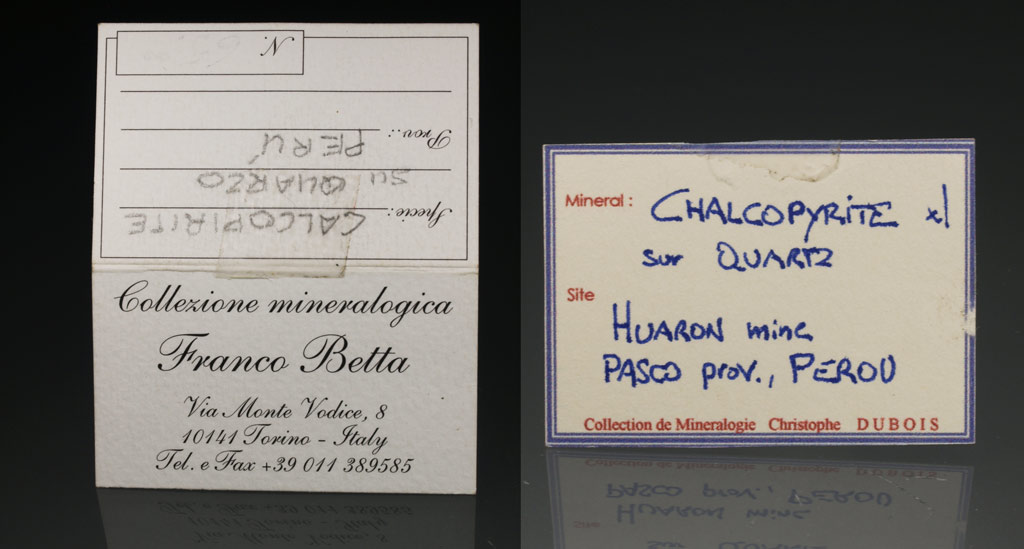 N.
Prov.:
PERÚ
SU QUARZO
Specie: CALCOPIRITE
Collezione mineralogica
Franco Betta
Via Monte Vodice, 8
10141 Torino - Italy
Tel. e Fax +39 011 389585
Mineral: CHALCOPYRITE xl
sur QUARTZ
Site
HUARON mine
PASCO prov., PEROU
Collection de Mineralogie Christophe DUBOIS